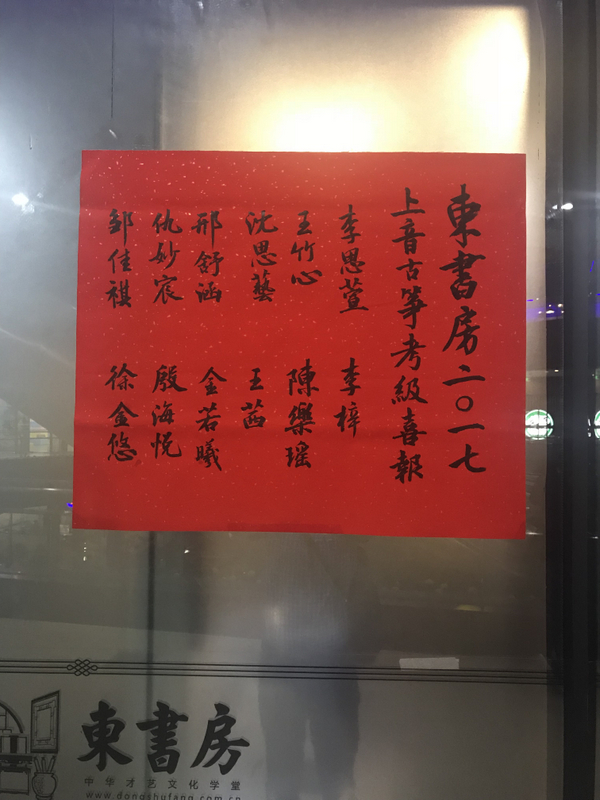 東書房二〇一七
上音古筝考級喜報
李思萱 李梓
王竹心 陳樂瑶
沈思藝 王茜
邢舒涵 金若曦
仇妙宸 殷海悦
邹佳祺 徐金悠
東書房
中华才艺文化学堂
www.dongshufang.com.cn